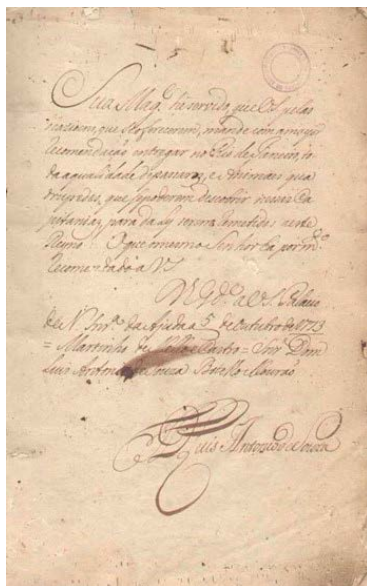 Sua Mag.e he servido, que V.S. pelas
ocazioens, que se oferecerem, mande com a mayor
recomendação entregar no Rio de Janeiro, to
da a qualidade de passaros, e de mais qua
drupedes, que se poderem descobrir nessa Ca
pitania, para daly serem remetidos a este
Reino: O que o mesmo Senhor ha por m.to
recomendado a V.S.
D.s g.de a V.S. Palacio
de N. Snr.a da Ajuda a 5 de Outubro de 1773
= Martinho de Mello e Castro = Snr. Dom
Luis Antonio de Souza Botelho Mourão
D. Luis Antonio de Souza